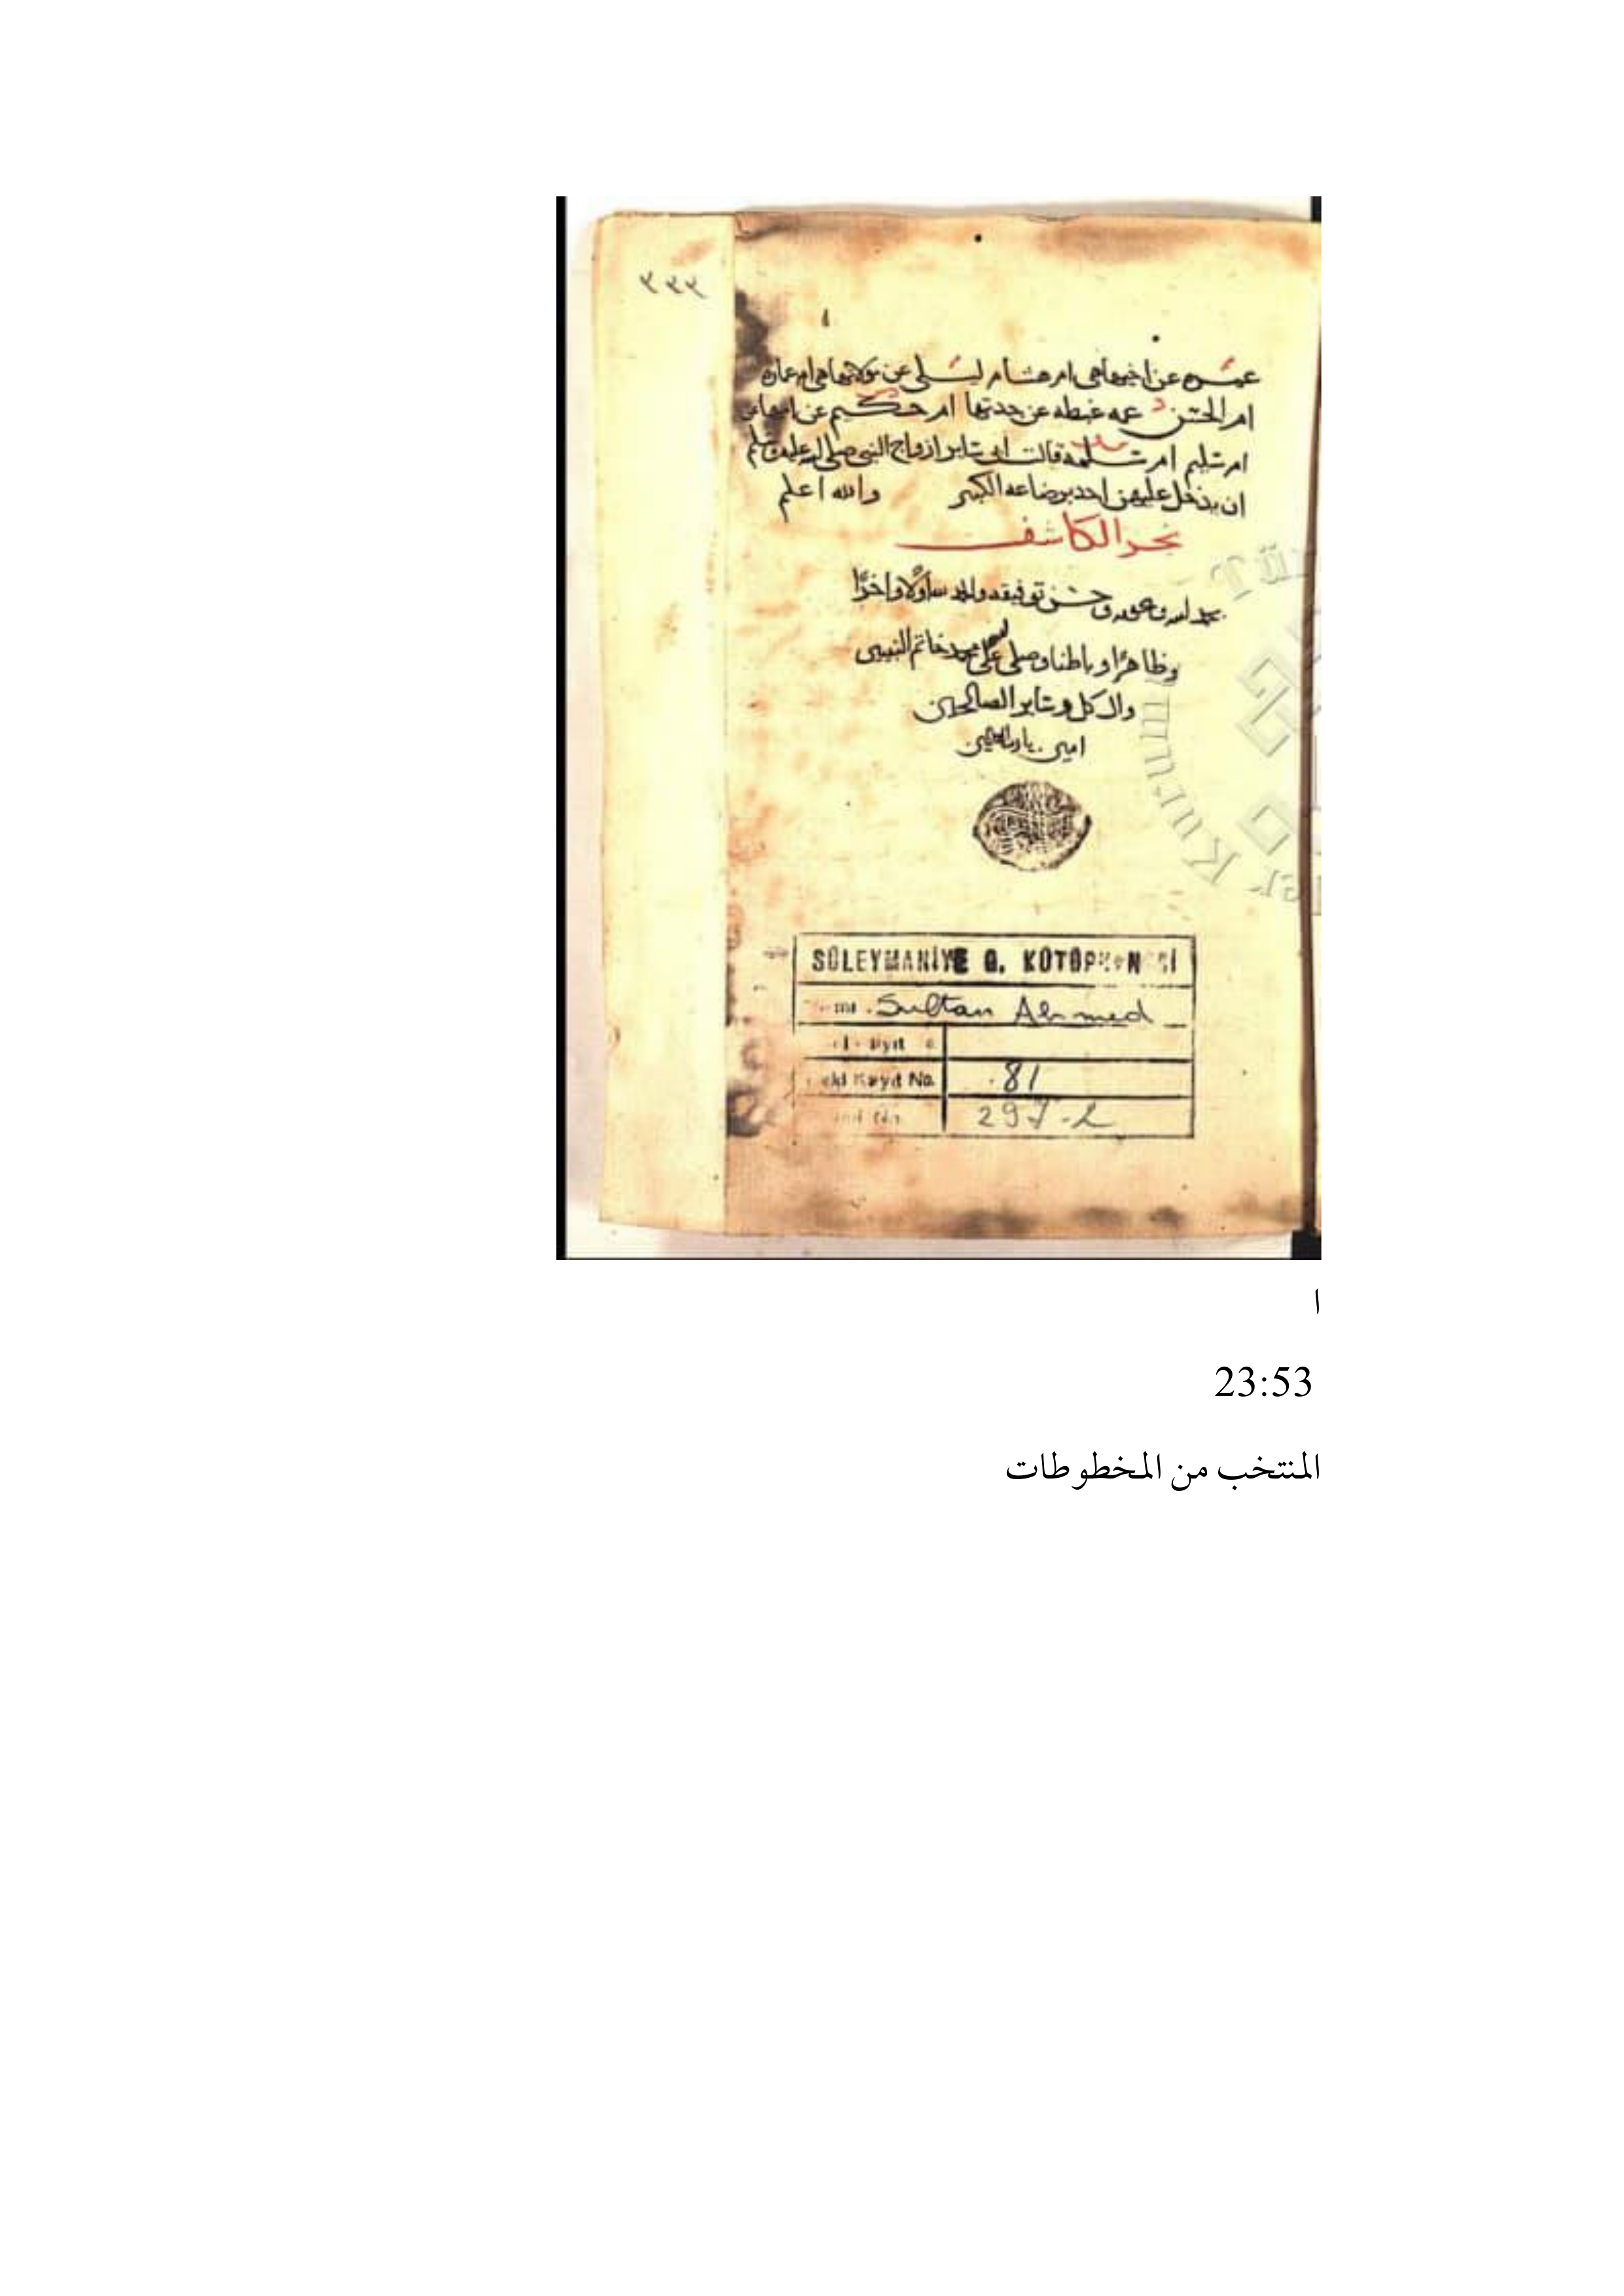 ٣٣٣
عمره عن اخيها هى ام هشام ليلى عن مولاتها هى ام عماره
ام الحسن د عمه غبطه عن جدتها ام حكيم عن امها عن
ام سليم ام سلمه قالت ابى ساير ازواج النبى صلى الله عليه وسلم
ان يدخل عليهن احد برضاعه الكبير والله اعلم
نجز الكاشف
بحمد الله وعونه وحسن توفيقه والحمد لله اولا واخرا
وظاهرا وباطنا وصلى الله على محمد خاتم النبيين
وال كل وسائر الصالحين
امين يا رب العالمين
SÜLEYMANİYE G. KÜTÜPHANESİ
Sultan Ahmed
Kayıt No. 81
297-2
ا
23:53
المنتخب من المخطوطات